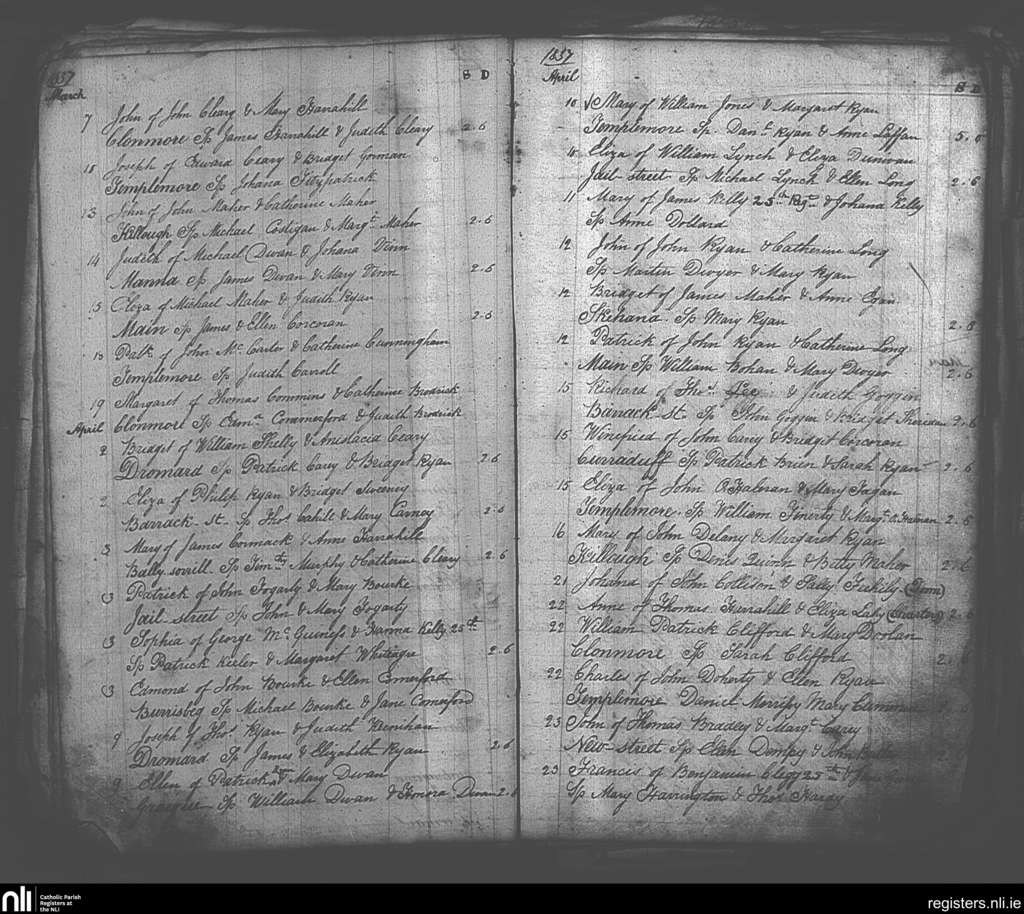 1837
March
S D
7 John of John Cleary & Mary Hanahill
Clonmore Sp James Hanahill & Judith Cleary 2.6
Joseph of Edward Ceary & Bridget Gorman
Templemore Sp Johana Fitzpatrick
13 John of John Maher & Catherine Maher
Killough Sp Michael Costigan & Margt. Maher 2.6
14 Judith of Michael Dwan & Johana Finn
Manna Sp James Dwan & Mary Finn 2.6
Eliza of Michael Maher & Judith Ryan
Main Sp James & Ellen Corcoran 2.6
18 Patk. of John Mc. Carter & Catherine Cunningham
Templemore Sp Judith Carroll
19 Margaret of Thomas Commins & Catherine Brodrick
Clonmore Sp Commerford & Judith Brodrick
April
2 Bridget of William Skelly & Anistacia Ceary
Dromard Sp Patrick Carey & Bridget Ryan 2.6
2 Eliza of Philip Ryan & Bridget Sweeney
Barrack St. Sp Thos. Cahill & Mary Carney 2.6
3 Mary of James Cormack & Anne Hanahill
Bally sorrill Sp Timthy Murphy & Catherine Cleary 2.6
Patrick of John Fogarty & Mary Bourke
Jail street Sp John & Mary Fogarty
Sophia of George Mc. Guiness & Hanna Kelly 25th
Sp Patrick Keeler & Margaret 2.6
Edmond of John Bourke & Ellen Comerford
Burrisbeg Sp Michael Bourke & Jane Comerford
9 Joseph of Thos. Ryan & Judith
Dromard Sp James & Elizabeth Ryan 2.6
9 Ellen of Patrick & Mary Dwan
Sp William Dwan & Honora Dwan 2.6
1837
April
S D
10 Mary of William Jones & Margaret Ryan
Templemore Sp. Danl. Ryan & Anne Laffan 5.0
Eliza of William Lynch & Eliza
Jail street Sp Michael Lynch & Ellen Long 2.6
11 Mary of James Kelly 25th Rgt. & Johana Kelly
Sp Anne Dollard
12 John of John Ryan & Catherine Long
Sp Martin Dwyer & Mary Ryan
12 Bridget of James Maher & Anne Egan
Skehana Sp Mary Ryan 2.6
12 Patrick of John Ryan & Catherine Long
Main Sp William Bohan & Mary Dwyer 2.6
15 Richard of Thos. Lee & Judith Goggin
Barrack St. Sp John Goggin & Bridget Sheridan 2.6
15 Winifred of John Carey & Bridget Corcoran
Curraduff Sp Patrick Brien & Sarah Ryan 2.6
15 Eliza of John & Mary Fagan
Templemore Sp William Finerty & Margt. 2.6
16 Mary of John Delany & Margaret Ryan
Killough Sp Denis Quinn & Betty Maher 2.6
21 Johana of John Collison & Sally
22 Anne of Thomas Hanahill & Eliza 2.6
22 William Patrick Clifford & Mary Dorlan
Clonmore Sp Sarah Clifford
22 Charles of John Doherty & Ellen Ryan
Templemore Daniel Mary
23 John of Thomas Bradley & Margt. Carey
New street Sp & John
23 Francis of Benjamin Clegg 25th &
Sp Mary Harrington & Thos. Hardy
nli
Catholic Parish
Registers at
the NLI
registers.nli.ie